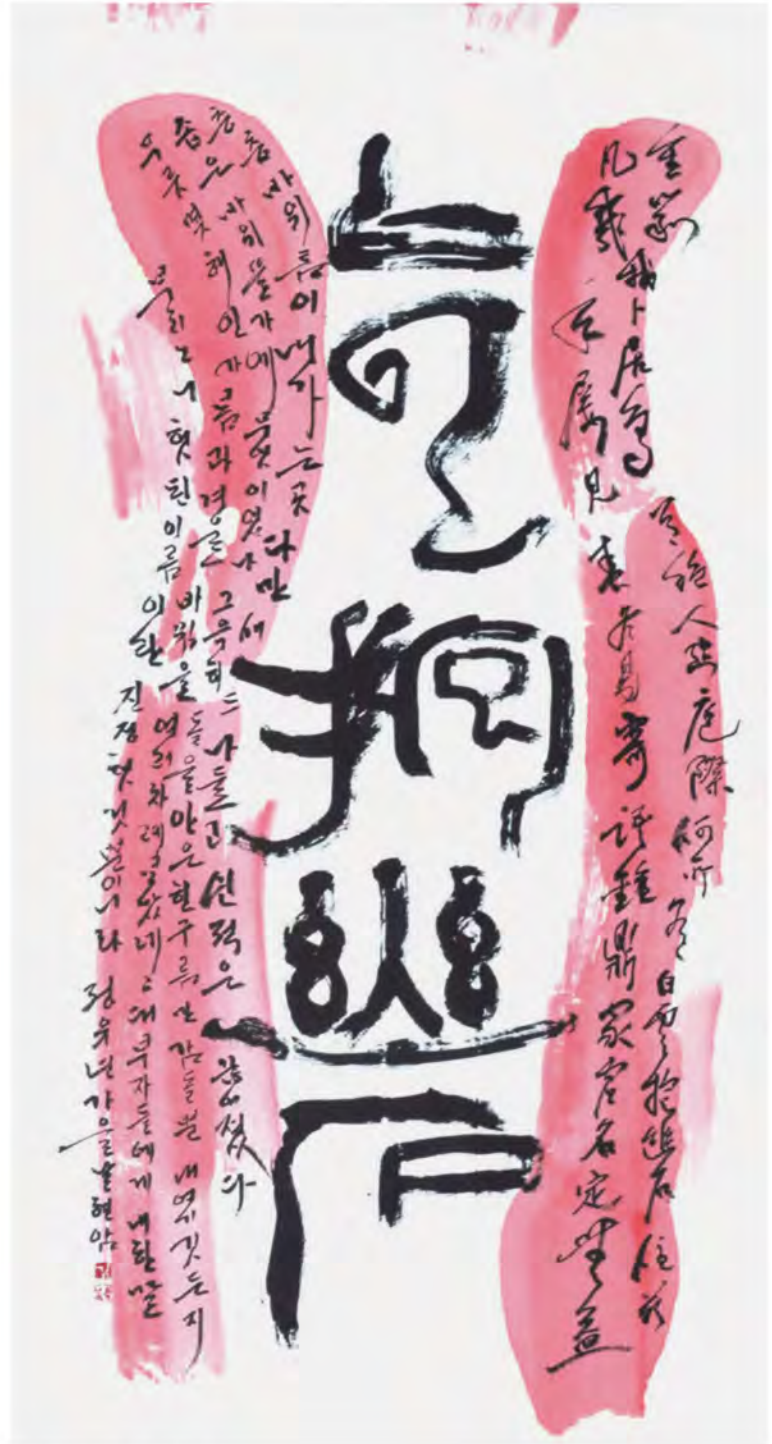 重巖我卜居鳥道絶人迹庭際何所有白雲抱幽石住玆
凡幾年屢見春冬易寄語鐘鼎家虛名定無益
云抱幽石
층층 바위 틈이 내가 사는 곳 다만 새 드나들고 인적은 끊어졌다
좁은 바위 뜰가에 무엇이 있나 그윽히 돌을 안은 흰구름만 감돌 뿐 내 여기 깃든지
무릇 몇 해인가 봄과 겨울 바뀜을 여러차례 보았네 그대 부자들에게 내 한말
헛된 이름이란 진정 헛것뿐이니라 정유년 가을날 현암